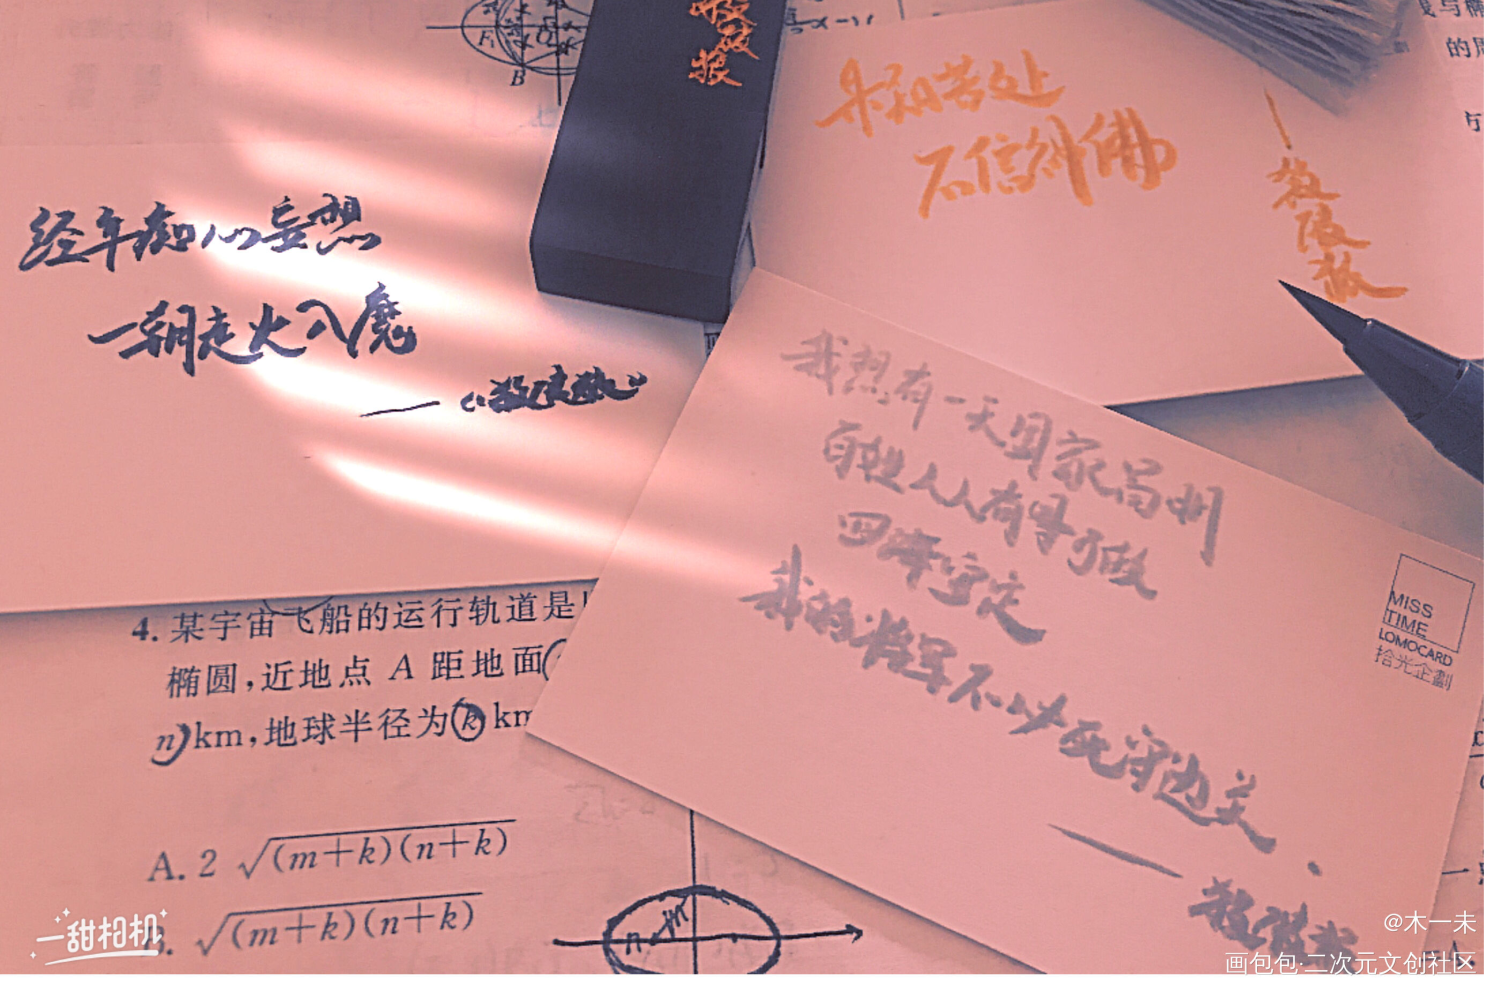 杀破狼
未知苦处
不信神佛
杀
破
狼
经年痴心妄想
一朝走火入魔
——《杀破狼》
我想有一天国家昌明
百姓人人有事可做
四海安定
我的将军不必死守边关
——杀破狼
MISS
TIME
LOMOCARD
拾光企劃
4. 某宇宙飞船的运行轨道是
椭圆,近地点 A 距地面
n)km,地球半径为(k) km
A. 2 √(m+k)(n+k)
B. √(m+k)(n+k)
F₁
B
的周
方
一甜相机
@木一未
画包包·二次元文创社区